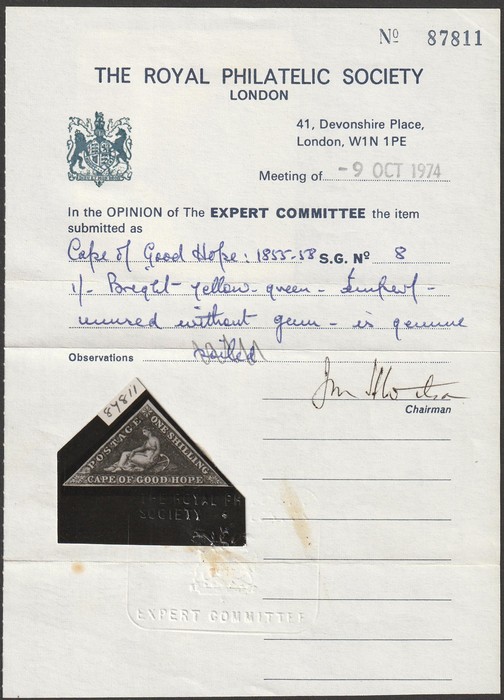 Nº 87811
THE ROYAL PHILATELIC SOCIETY
LONDON
41, Devonshire Place,
London, W1N 1PE
Meeting of -9 OCT 1974
In the OPINION of The EXPERT COMMITTEE the item
submitted as
Cape of Good Hope: 1855-58 S.G. Nº 8
1/- Bright-yellow-green - Imperf -
unused without gum - is genuine
Observations
Chairman
87811
POSTAGE ONE SHILLING
CAPE OF GOOD HOPE
THE ROYAL PH
SOCIETY
EXPERT COMMITTEE